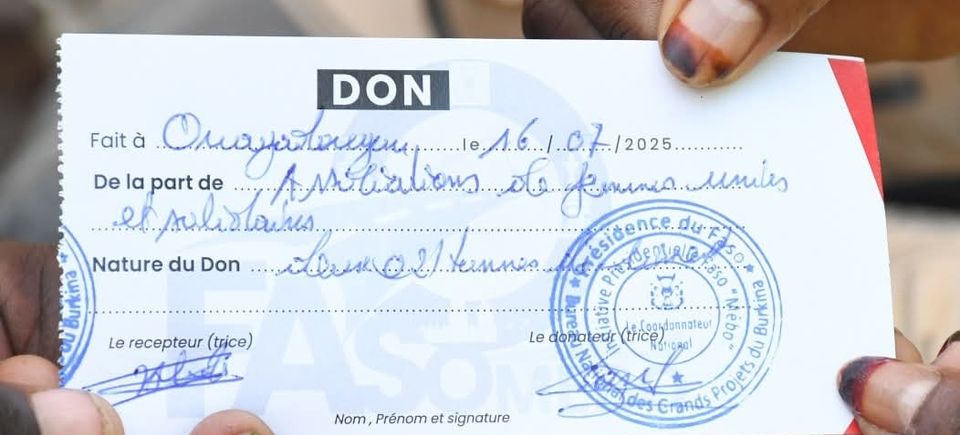 DON
Fait à Ouagadougou le 16/07/2025
De la part de Associations de femmes unies
et solidaires
Nature du Don deux (02) tonnes de
Le recepteur (trice)
Le donateur (trice)
Nom, Prénom et signature
Présidence du Faso
Initiative Présidentielle Faso "Mêbo"
Le Coordonnateur
National
Bureau National des Grands Projets du Burkina
du Burkina
FASO M